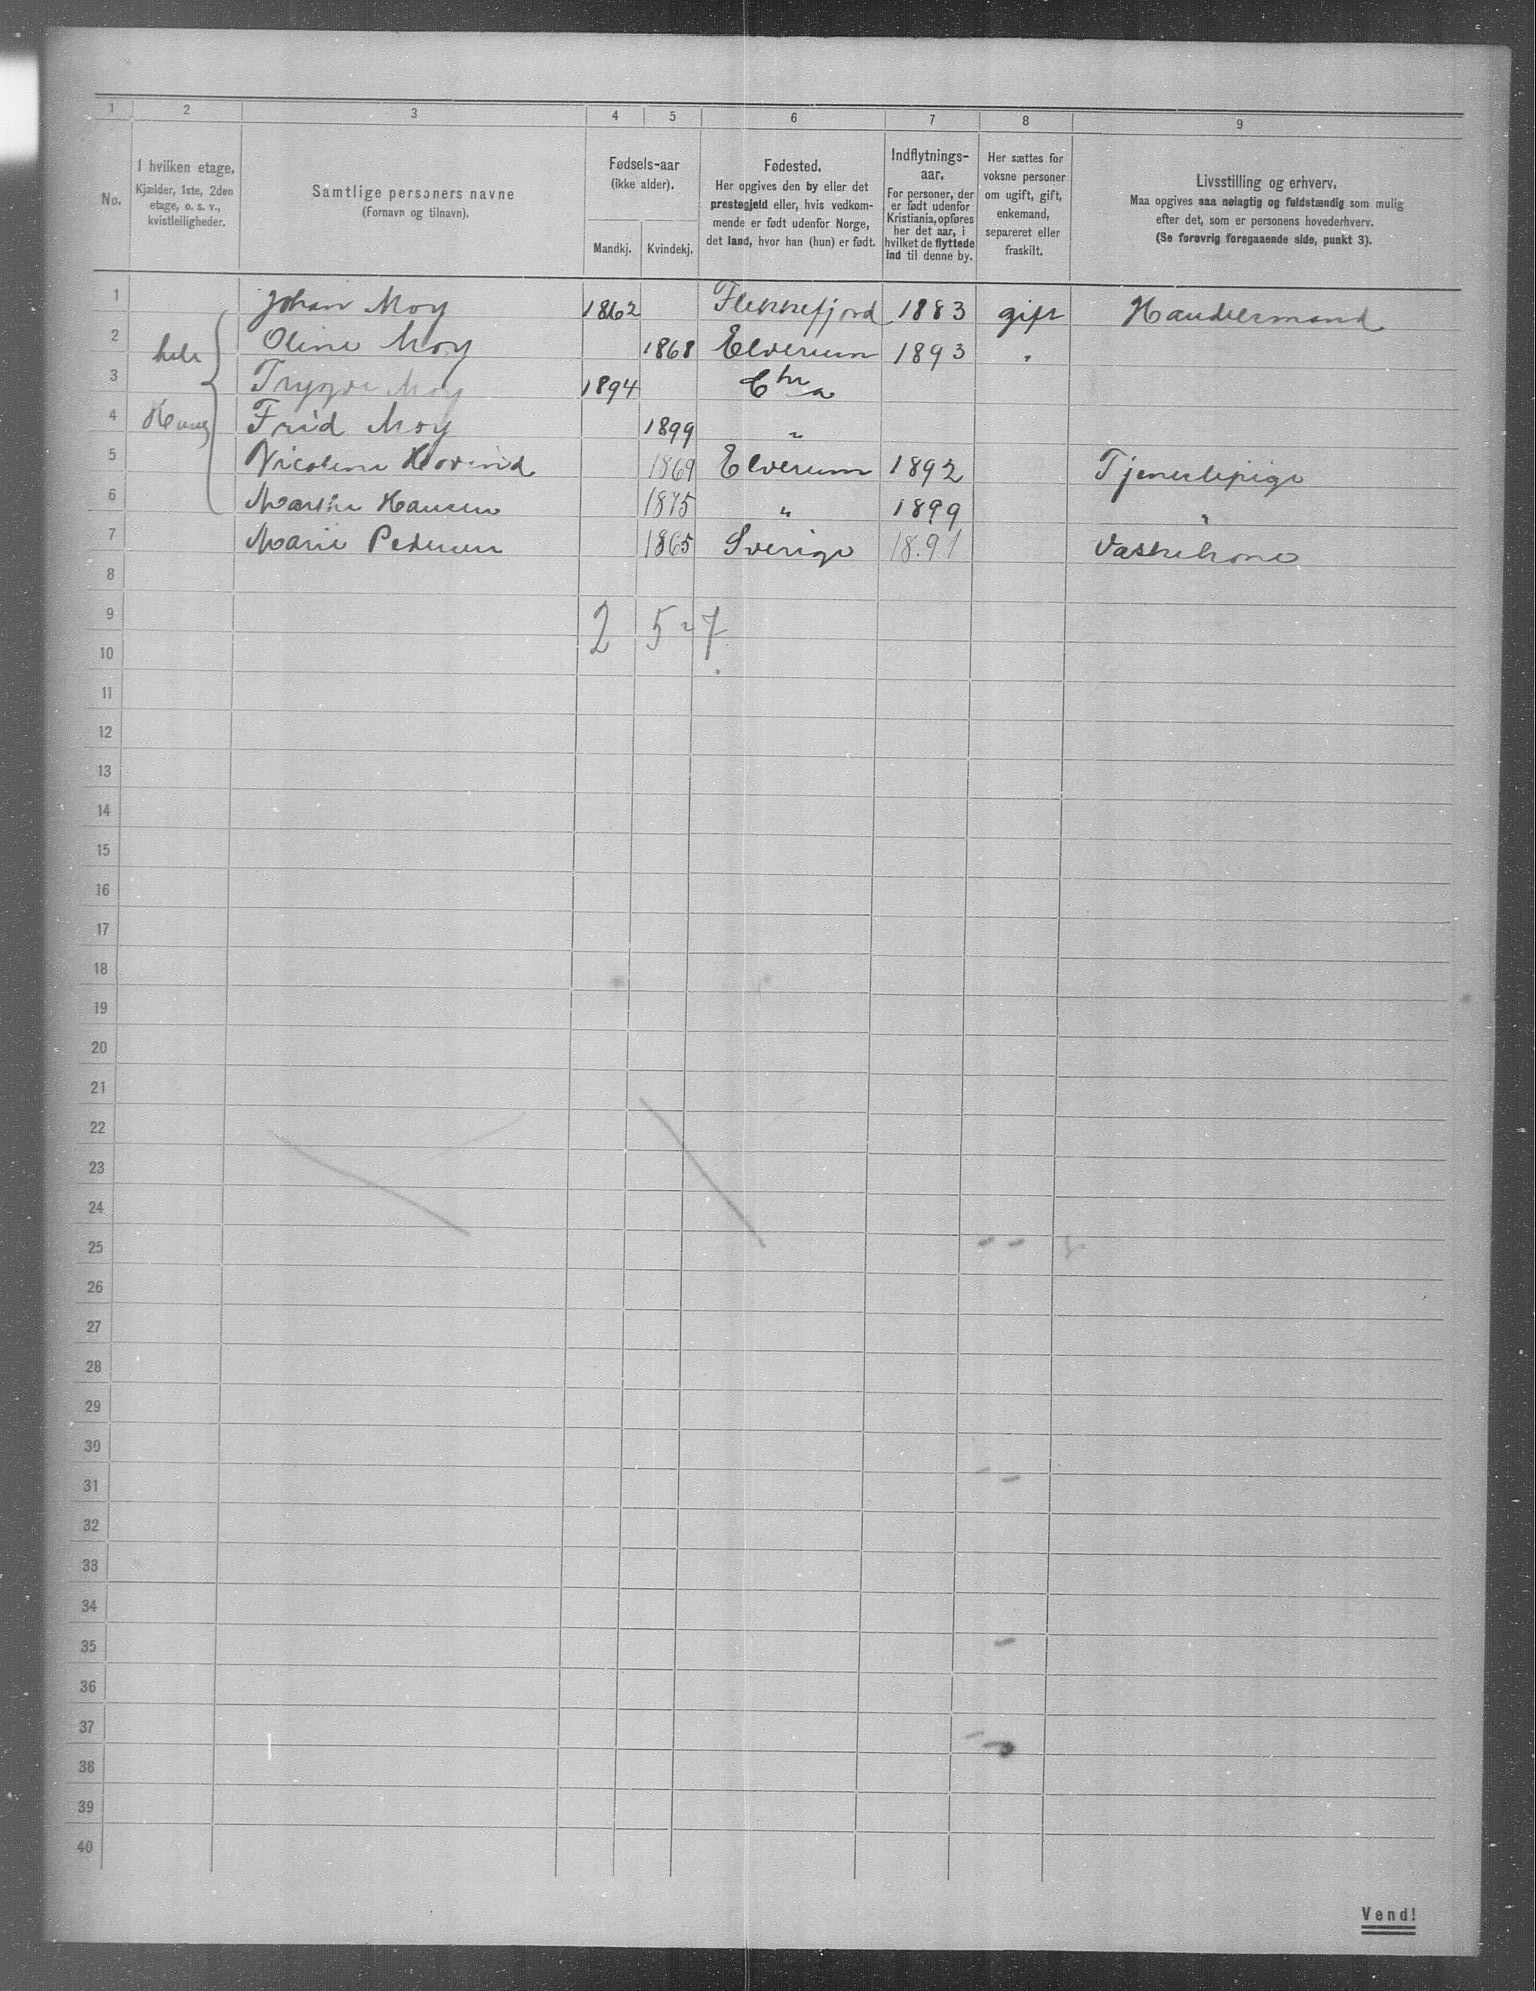 1 2 3 4 5 6 7 8 9
No.
I hvilken etage.
Kjælder, 1ste, 2den
etage, o. s. v.,
kvistleiligheder.
Samtlige personers navne
(Fornavn og tilnavn).
Fødsels-aar
(ikke alder).
Mandkj. Kvindekj.
Fødested.
Her opgives den by eller det
prestegjeld eller, hvis vedkom-
mende er født udenfor Norge,
det land, hvor han (hun) er født.
Indflytnings-
aar.
For personer, der
er født udenfor
Kristiania, opføres
her det aar, i
hvilket de flyttede
ind til denne by.
Her sættes for
voksne personer
om ugift, gift,
enkemand,
separeret eller
fraskilt.
Livsstilling og erhverv.
Maa opgives saa nøiagtig og fuldstændig som mulig
efter det, som er personens hovederhverv.
(Se forøvrig foregaaende side, punkt 3).
1 Johan Moy 1862 Flekkefjord 1883 gift Handelsmand
2 hele Oline Moy 1868 Elverum 1893 "
3 Trygve Moy 1894 Chra
4 Huus Frid Moy 1899 "
5 Nicoline Hovind 1869 Elverum 1892 Tjenestepige
6 Marthe Hansen 1875 " 1899 "
7 Marie Pedersen 1865 Sverige 1891 Vaskekone
8
9 2 5 - 7
10
11
12
13
14
15
16
17
18
19
20
21
22
23
24
25
26
27
28
29
30
31
32
33
34
35
36
37
38
39
40
Vend!